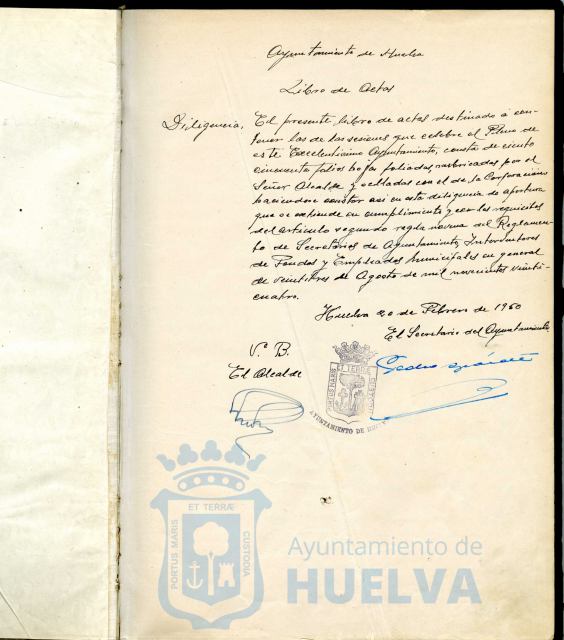 Ayuntamiento de Huelva
Libro de Actas
Diligencia, El presente libro de actas destinado a con-
tener las de las sesiones que celebre el Pleno de
este Excelentísimo Ayuntamiento, consta de ciento
cincuenta folios hojas foliadas, rubricadas por el
Señor Alcalde y selladas con el de la Corporación
haciendose constar asi en esta diligencia de apertura
que se extiende en cumplimiento y con los requisitos
del articulo segundo regla novena del Reglamen-
to de Secretarios de Ayuntamiento, Interventores
de Fondos y Empleados municipales en general
de veintitres de Agosto de mil novecientos veinti-
cuatro.
Huelva 20 de Febrero de 1960
El Secretario del Ayuntamiento
Vº B.
El Alcalde
Pedro
ET TERRÆ
PORTUS MARIS
CUSTODIA
AYUNTAMIENTO DE HUELVA
ET TERRÆ
PORTUS MARIS
CUSTODIA
Ayuntamiento de
HUELVA